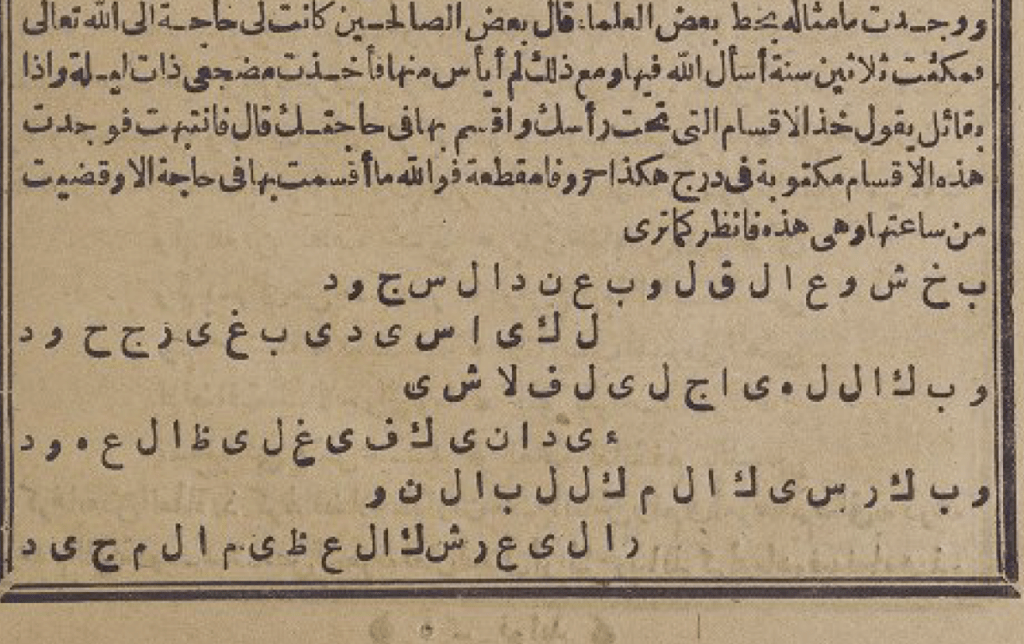 ووجدت مامثاله بخط بعض العلماء قال بعض الصالحين كانت لى حاجة الى الله تعالى
فمكثت ثلاثين سنة أسأل الله فيها ومع ذلك لم أيأس منها فأخذت مضجعى ذات ليلة واذا
بقائل يقول خذ الاقسام التى تحت رأسك واقسم بها فى حاجتك قال فانتبهت فوجدت
هذه الاقسام مكتوبة فى درج هكذا حروفا مقطعة فوالله ما أقسمت بها فى حاجة الا وقضيت
من ساعتها وهى هذه فانظر كما ترى
ب خ ش و ع ا ل ق ل و ب ع ن د ا ل س ج و د
ل ك ى ا س ى د ى ب غ ى ر ج ح و د
و ب ك ا ل ل ه ى ا ج ل ى ل ف ل ا ش ى
ء ى د ا ن ى ك ف ى غ ل ى ظ ا ل ع ه و د
و ب ك ر س ى ك ا ل م ك ل ل ب ا ل ن و
ر ا ل ى ع ر ش ك ا ل ع ظ ى م ا ل م ج ى د